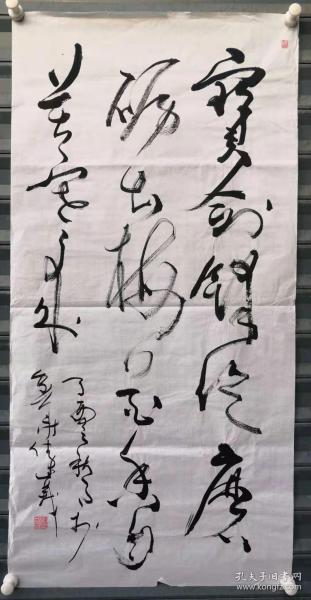 宝剑锋从磨
砺出梅花香自
苦寒来
丁酉之秋月书
孔夫子旧书网